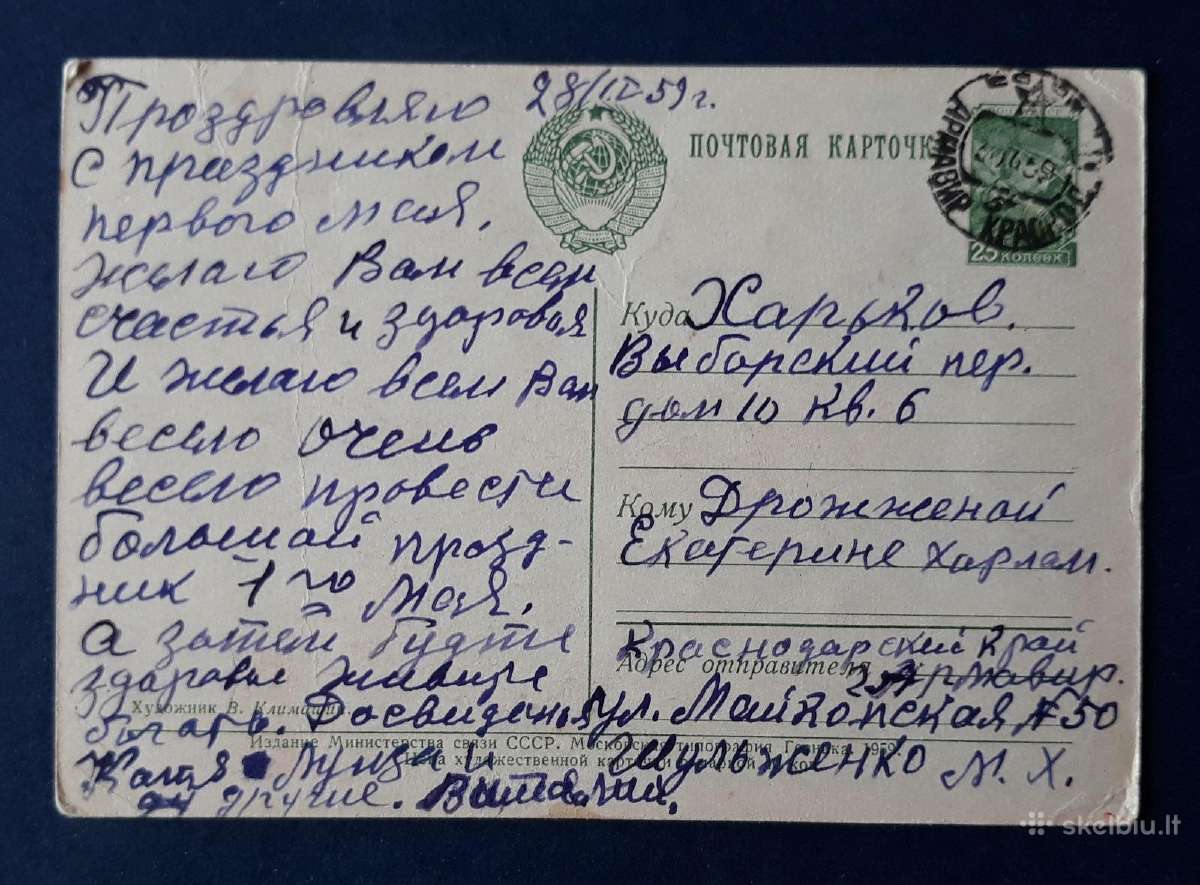 28/IV 59 г.
Проздровляю
с праздником
первого мая.
желаю Вам всем
счастья и здоровья
И желаю всем Вам
весело очень
весело провести
большой празд-
ник 1 го мая.
а затем будте
здоровы живите
богато. Досвиданья
Катя Луиза и
другие. Виталий.
ПОЧТОВАЯ КАРТОЧКА
25 КОПЕЕК
АРМАВИР
КРАСНОД
Куда Харьков.
Выборский пер.
дом 10 кв. 6
Кому Дрожженой
Екатерине Харлам.
Краснодарский край
Адрес отправителя г. Армавир.
ул. Майкопская № 50
Шульженко М. Х.
Художник В. Климашин
Издание Министерства связи СССР. Московская типография Гознака. 1959.
Цена художественной карточки с маркой коп.
skelbiu.lt